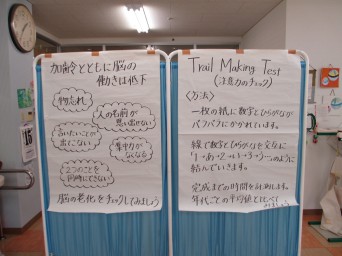 加齢とともに脳の
働きは低下
物忘れ
人の名前が
思い出せない
言いたいことが
出てこない
集中力が
なくなる
2つのことを
同時にできない
脳の老化をチェックしてみましょう
Trail Making Test
(注意力のチェック)
<方法>
一枚の紙に数字とひらがなが
バラバラにかかれています。
線で数字とひらがなを交互に
「1→あ→2→い→3→う→…」のように
結んでいきます。
完成までの時間を計測します。
年代ごとの平均値とくらべ
15